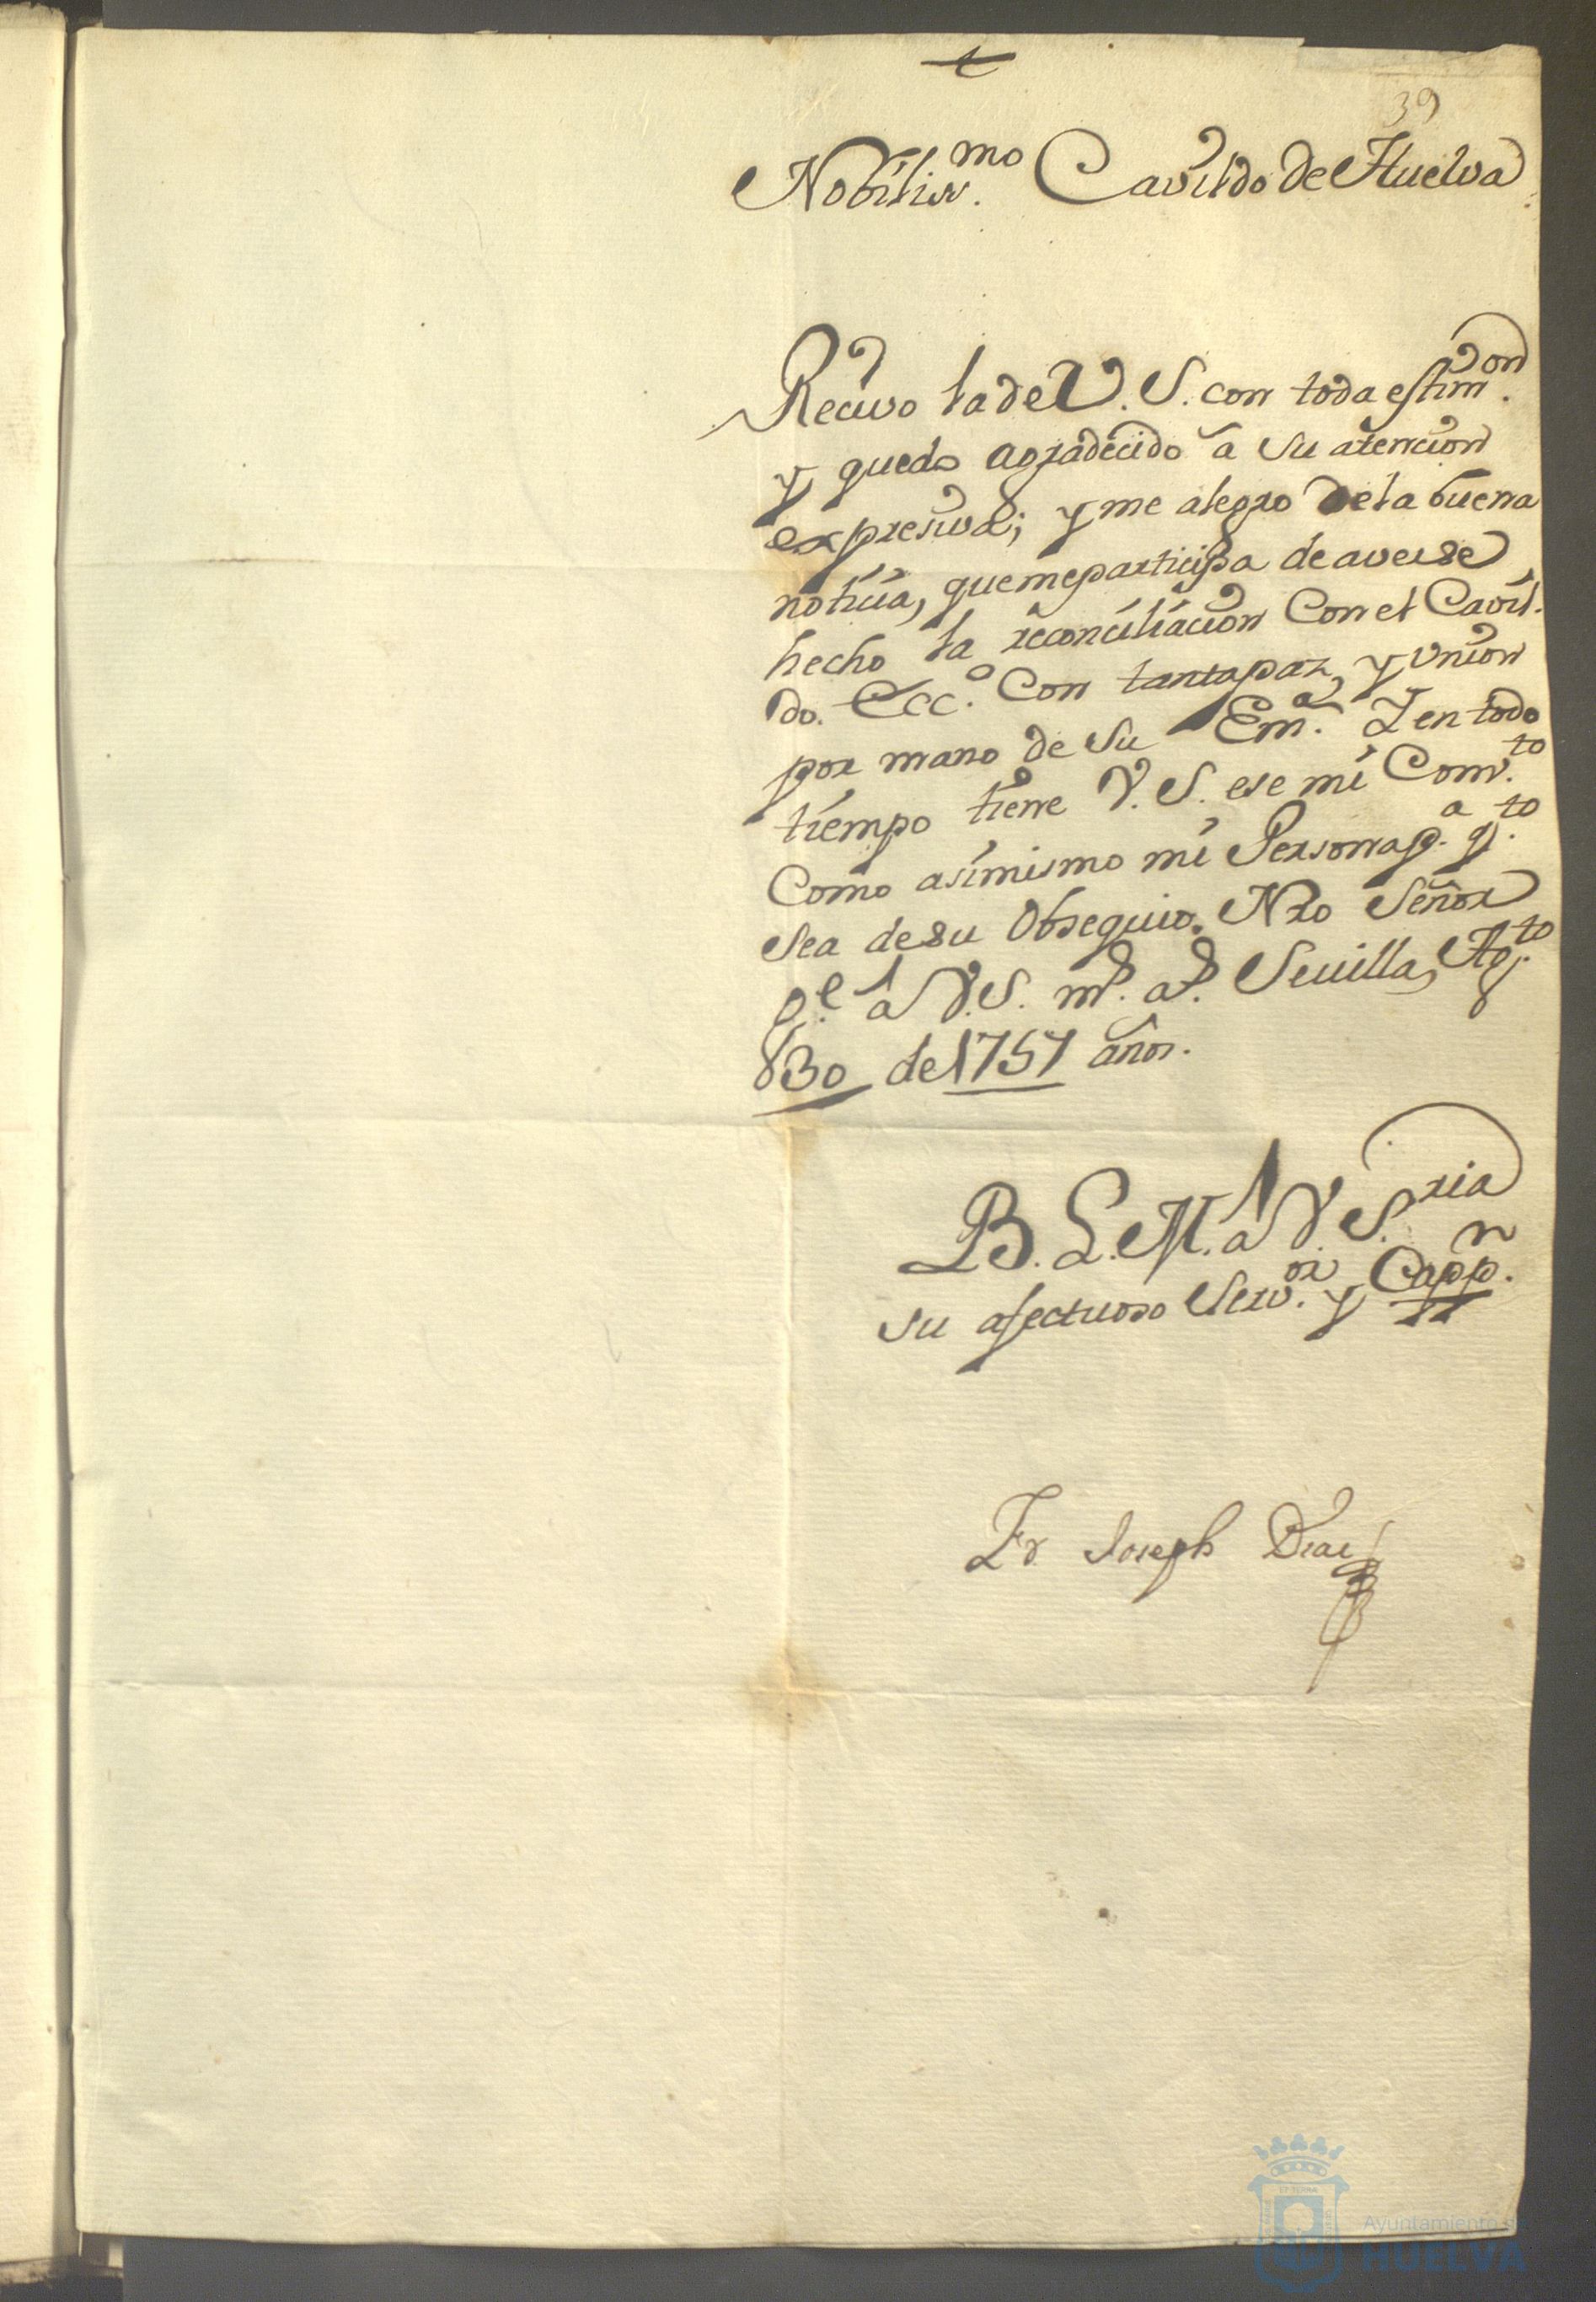 39
Nobiliss.mo Cavildo de Huelva
Recivo la de V. S. con toda estim.on
y quedo agradecido â su atencion
expresiva; y me alegro de la buena
noticia, que me participa de averse
hecho la reconciliacion Con el Cavil-
do. Ecc.o Con tanta paz, y union
por mano de su Em.a Y en todo
tiempo tiene V. S. ese mi Conv.to
Como asimismo mi Persona p.a q.to
sea de su Obsequio. Nro Señor
g.e a V.S. m.s a.s Sevilla, Ag.to
30 de 1757 años.
B. L. M. a V. S.ria
su afectuoso Serv.or y Capp.n
Fr. Joseph Diaz
Ayuntamiento de
HUELVA